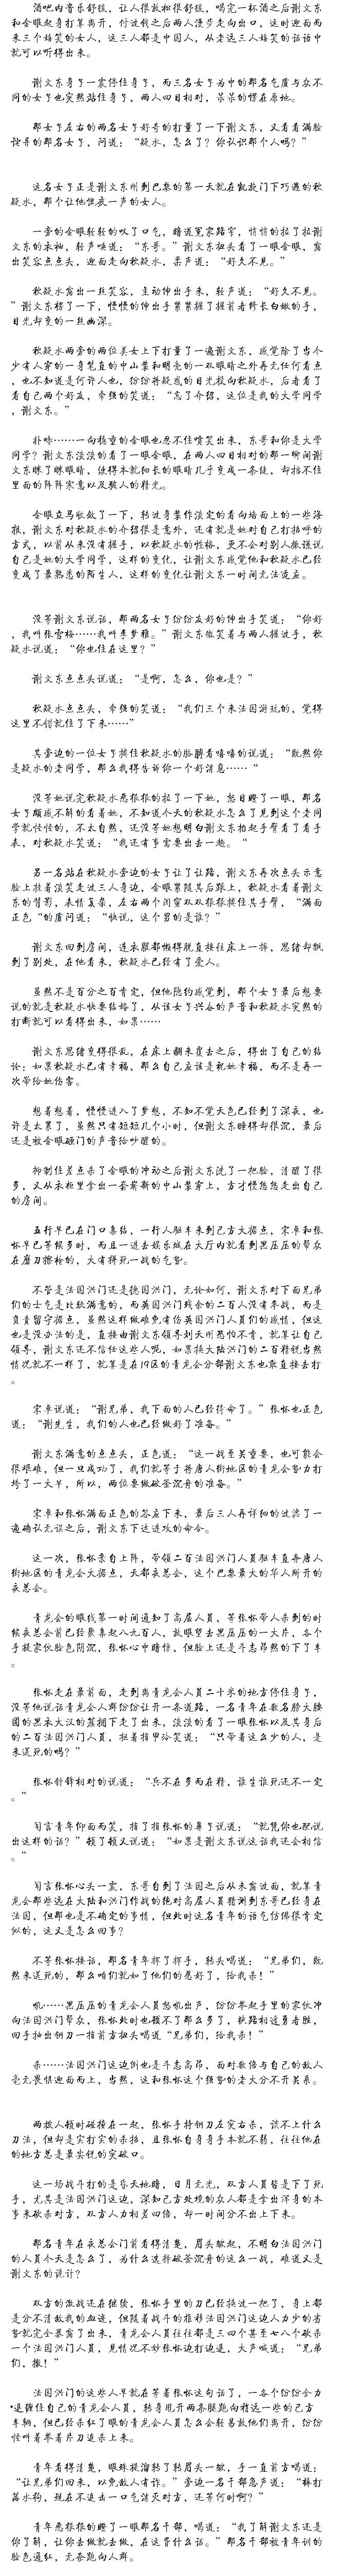 酒吧内音乐舒缓，让人很放松很舒缓，喝完一杯酒之后谢文东
和金眼起身打算离开，付过钱之后两人漫步走向出口，这时迎面而
来三个嬉笑的女人，这三人都是中国人，从老远三人嬉笑的话语中
就可以听得出来。
谢文东身子一震停住身子，而三名女子为中的那名气质与众不
同的女子也突然站住身子，两人四目相对，呆呆的愣在原地。
那女子左右的两名女子好奇的打量了一下谢文东，又看看满脸
诧异的那名女子，问道：“疑水，怎么了？你认识那个人吗？”
这名女子正是谢文东刚到巴黎的第一天就在凯旋门下巧遇的秋
疑水，那个让他愧疚一声的女人。
一旁的金眼轻轻的叹了口气，暗道冤家路窄，悄悄的拉了拉谢
文东的衣袖，轻声唤道：“东哥。”谢文东扭头看了一眼金眼，露
出笑容点点头，迎面走向秋疑水，柔声道：“好久不见。”
秋疑水露出一丝笑容，主动伸出手来，轻声道：“好久不见。
”谢文东楞了一下，慢慢的伸出手紧紧握了握前者修长白嫩的手，
目光却变的一丝幽深。
秋疑水两旁的两位美女上下打量了一遍谢文东，感觉除了当今
少有人穿的一身笔直的中山装和明亮的一双眼睛之外再无任何看点
，也不知道是何许人也，纷纷将疑惑的目光投向秋疑水，后者看了
看自己两个好友，牵强的笑道：“忘了介绍，这位是我的大学同学
，谢文东。”
扑哧……一向稳重的金眼也忍不住喷笑出来，东哥和你是大学
同学？谢文东淡淡的看了一眼金眼，在两人四目相对的那一瞬间谢
文东眯了眯眼睛，使得本就细长的眼睛几乎变成一条缝，却挡不住
里面的阵阵寒意以及骇人的精光。
金眼立马收敛了一下，转过身装作淡定的看向墙面上的一些海
报，谢文东对秋疑水的介绍很是意外，还有就是她对自己打招呼的
方式，以前从来没有握手，以秋疑水的性格，更不会对别人撒谎说
自己是她的大学同学，这样的变化，让谢文东感觉他和秋疑水已经
变成了最熟悉的陌生人，这样的变化让谢文东一时间无法适应。
没等谢文东说话，那两名女子纷纷友好的伸出手笑道：“你好
，我叫张雪梅……我叫李梦雅。”谢文东微笑着与两人握过手，秋
疑水说道：“你也住在这里？”
谢文东点点头说道：“是啊，怎么，你也是？”
秋疑水点点头，牵强的笑道：“我们三个来法国游玩的，觉得
这里不错就住了下来……”
其旁边的一位女子搂住秋疑水的胳膊看嘻嘻的说道：“既然你
是疑水的老同学，那么我得告诉你一个好消息……“
没等她说完秋疑水悉狠狠的拉了一下她，怒目瞪了一眼，那名
女子颇感不解的看着她，不知道今天的秋疑水怎么了见到这个老同
学就怪怪的，不太自然，还没等她想明白谢文东抬起手臂看了看手
表，对秋疑水笑道：“我还有事需要出去一趟。“
另一名站在秋疑水旁边的女子让了让路，谢文东再次点头示意
脸上挂着淡笑走过三人身边，金眼紧随其后跟上，秋疑水看着谢文
东的背影，表情复杂，左右两个闺蜜双双狠狠搂住其手臂，“满面
正色“的质问道：“快说，这个男的是谁？”
谢文东回到房间，连衣服都懒得脱直接往床上一摔，思绪却飘
到了别处，在他看来，秋疑水已经有了爱人。
虽然不是百分之百肯定，但他隐约感觉到，那个女子最后想要
说的就是秋疑水快要结婚了，从该女子兴奋的声音和秋疑水突然的
打断就可以看得出来，如果……
谢文东思绪变得很乱，在床上翻来覆去之后，得出了自己的结
论：如果秋疑水已有幸福，那么自己应该是祝她幸福，而不是再一
次带给她伤害。
想着想着，慢慢进入了梦想，不知不觉天色已经到了深夜，也
许是太累了，虽然只有短短几个小时，但谢文东睡得却很沉，最后
还是被金眼砸门的声音给吵醒的。
抑制住差点杀了金眼的冲动之后谢文东洗了一把脸，清醒了很
多，又从衣柜里拿出一套崭新的中山装穿上，方才慢悠悠走出自己
的房间。
五行早已在门口集结，一行人驱车来到己方大据点，宋卓和张
怀早已等候多时，而且一进去娱乐城在大厅内就看到黑压压的帮众
在磨刀擦枪的，大有拼死一战的气势。
不管是法国洪门还是德国洪门，无论如何，谢文东对下面兄弟
们的士气是比较满意的，而英国洪门残余的二百人没有参战，而是
负责留守据点，虽然这样做难免有伤英国洪门人员们的感情，但这
也是没办法的是，直接由谢文东领导刘天州恐怕不肯，就算让自己
领导，谢文东还不信任这些人呢，如果换大陆洪门的二百精锐当然
情况就不一样了，就算是在19区的青龙会分部谢文东也敢直接去打
。
宋卓说道：“谢兄弟，我下面的人已经待命了。”张怀也正色
道：“谢先生，我们的人也已经做好了准备。”
谢文东满意的点点头，正色道：“这一战至关重要，也可能会
很艰难，但一旦成功了，我们就等于将唐人街地区的青龙会势力打
垮了一大半，所以，两位要做破釜沉舟的准备。”
宋卓和张怀满面正色的答应下来，最后三人再详细的过滤了一
遍确认无误之后，谢文东下达进攻的命令。
这一次，张怀亲自上阵，带领二百法国洪门人员驱车直奔唐人
街地区的青龙会大据点，天都夜总会，这个巴黎最大的华人所开的
夜总会。
青龙会的眼线第一时间通知了高层人员，等张怀带人杀到的时
候夜总会前已经聚集起八九百人，放眼望去黑压压的一大片，各个
手握家伙脸色阴沉，张怀心中暗惊，但脸上还是斗志昂然的下了车
。
张怀走在最前面，走到离青龙会人员二十米的地方停住身子，
没等他说话青龙会人群纷纷让开一条道路，一名青年在数名膀大腰
圆的黑衣大汉的簇拥下走了出来，淡淡的看了一眼张怀以及其身后
的二百法国洪门人员，抠着指甲冷笑道：“只带着这么少的人，是
来送死的吗？”
张怀针锋相对的说道：“兵不在多而在精，谁生谁死还不一定
。”
闻言青年仰面而笑，指了指张怀的鼻子说道：“就凭你也配说
出这样的话？”顿了顿又说道：“如果是谢文东说这话我还会相信
。”
闻言张怀心头一震，东哥自到了法国之后从未露过面，就算青
龙会那些远在大陆和洪门作战的绝对高层人员猜测到东哥已经身在
法国，但那也是不确定的事情，但此时这名青年的语气仿佛很肯定
似的，这又是怎么回事？
不等张怀接话，那名青年挥了挥手，转头喝道：“兄弟们，既
然来送死的，那么咱们就如了他们的愿好了，给我杀！”
吼……黑压压的青龙会人员怒吼出声，纷纷举起手里的家伙冲
向法国洪门帮众，张怀此时也顾不了那么多了，狭路相逢勇者胜，
回手抽出钢刀一指前方扭头喝道“兄弟们，给我杀！”
杀……法国洪门这边倒也是斗志高昂，面对数倍与自己的敌人
毫无畏惧迎面而上，当然，这和张怀这个强势的老大分不开关系。
两拨人顿时碰撞在一起，张怀手持钢刀左突右杀，谈不上什么
刀法，但却是实打实的杀招，且张怀自身身手本就不弱，往往他在
的地方总是最尖锐的突破口。
这一场战斗打的是昏天地暗，日月无光，双方人员皆是下了死
手，尤其是法国洪门这边，深知己方处境的众人都是拿出浑身的本
事来砍杀对方，双方人力相差四倍，却一时间分不出上下来。
那名青年在夜总会门前看得清楚，眉头皱起，不明白法国洪门
的人员今天是怎么了，为什么选择破釜沉舟的这么一战，难道又是
谢文东的诡计？
双方的激战还在继续，张怀手里的刀已经换过一把了，身上都
是分不清敌我的血迹，但随着战斗的推移法国洪门这边人力少的劣
势就完全暴露了出来，青龙会人员往往都是三四个甚至七八个砍杀
一个法国洪门人员，见情况不妙张怀边打边退，大声喊道：“兄弟
们，撤！”
法国洪门的这些人早就在等着张怀这句话了，一各个纷纷全力
逼缠住自己的青龙会人员，转身甩开两条腿跑向稍远一些的己方
车辆，但已经杀红了眼的青龙会人员怎么会轻易放他们离开，纷纷
怪叫着举着片刀追杀上来。
青年看得清楚，眼珠提溜转了转眉头一皱，手一直前方喝道：
“让兄弟们回来，以免敌人有诈。”旁边一名干部忽声道：“棒打
落水狗，现在不追去一口气消灭对方，还等何时啊？”
青年悉狠狠的瞪了一眼那名干部，喝道：“我了解谢文东还是
你了解，让你去做就去做，在这费什么话。”那名干部被青年训的
脸色通红，无奈跑向人群。